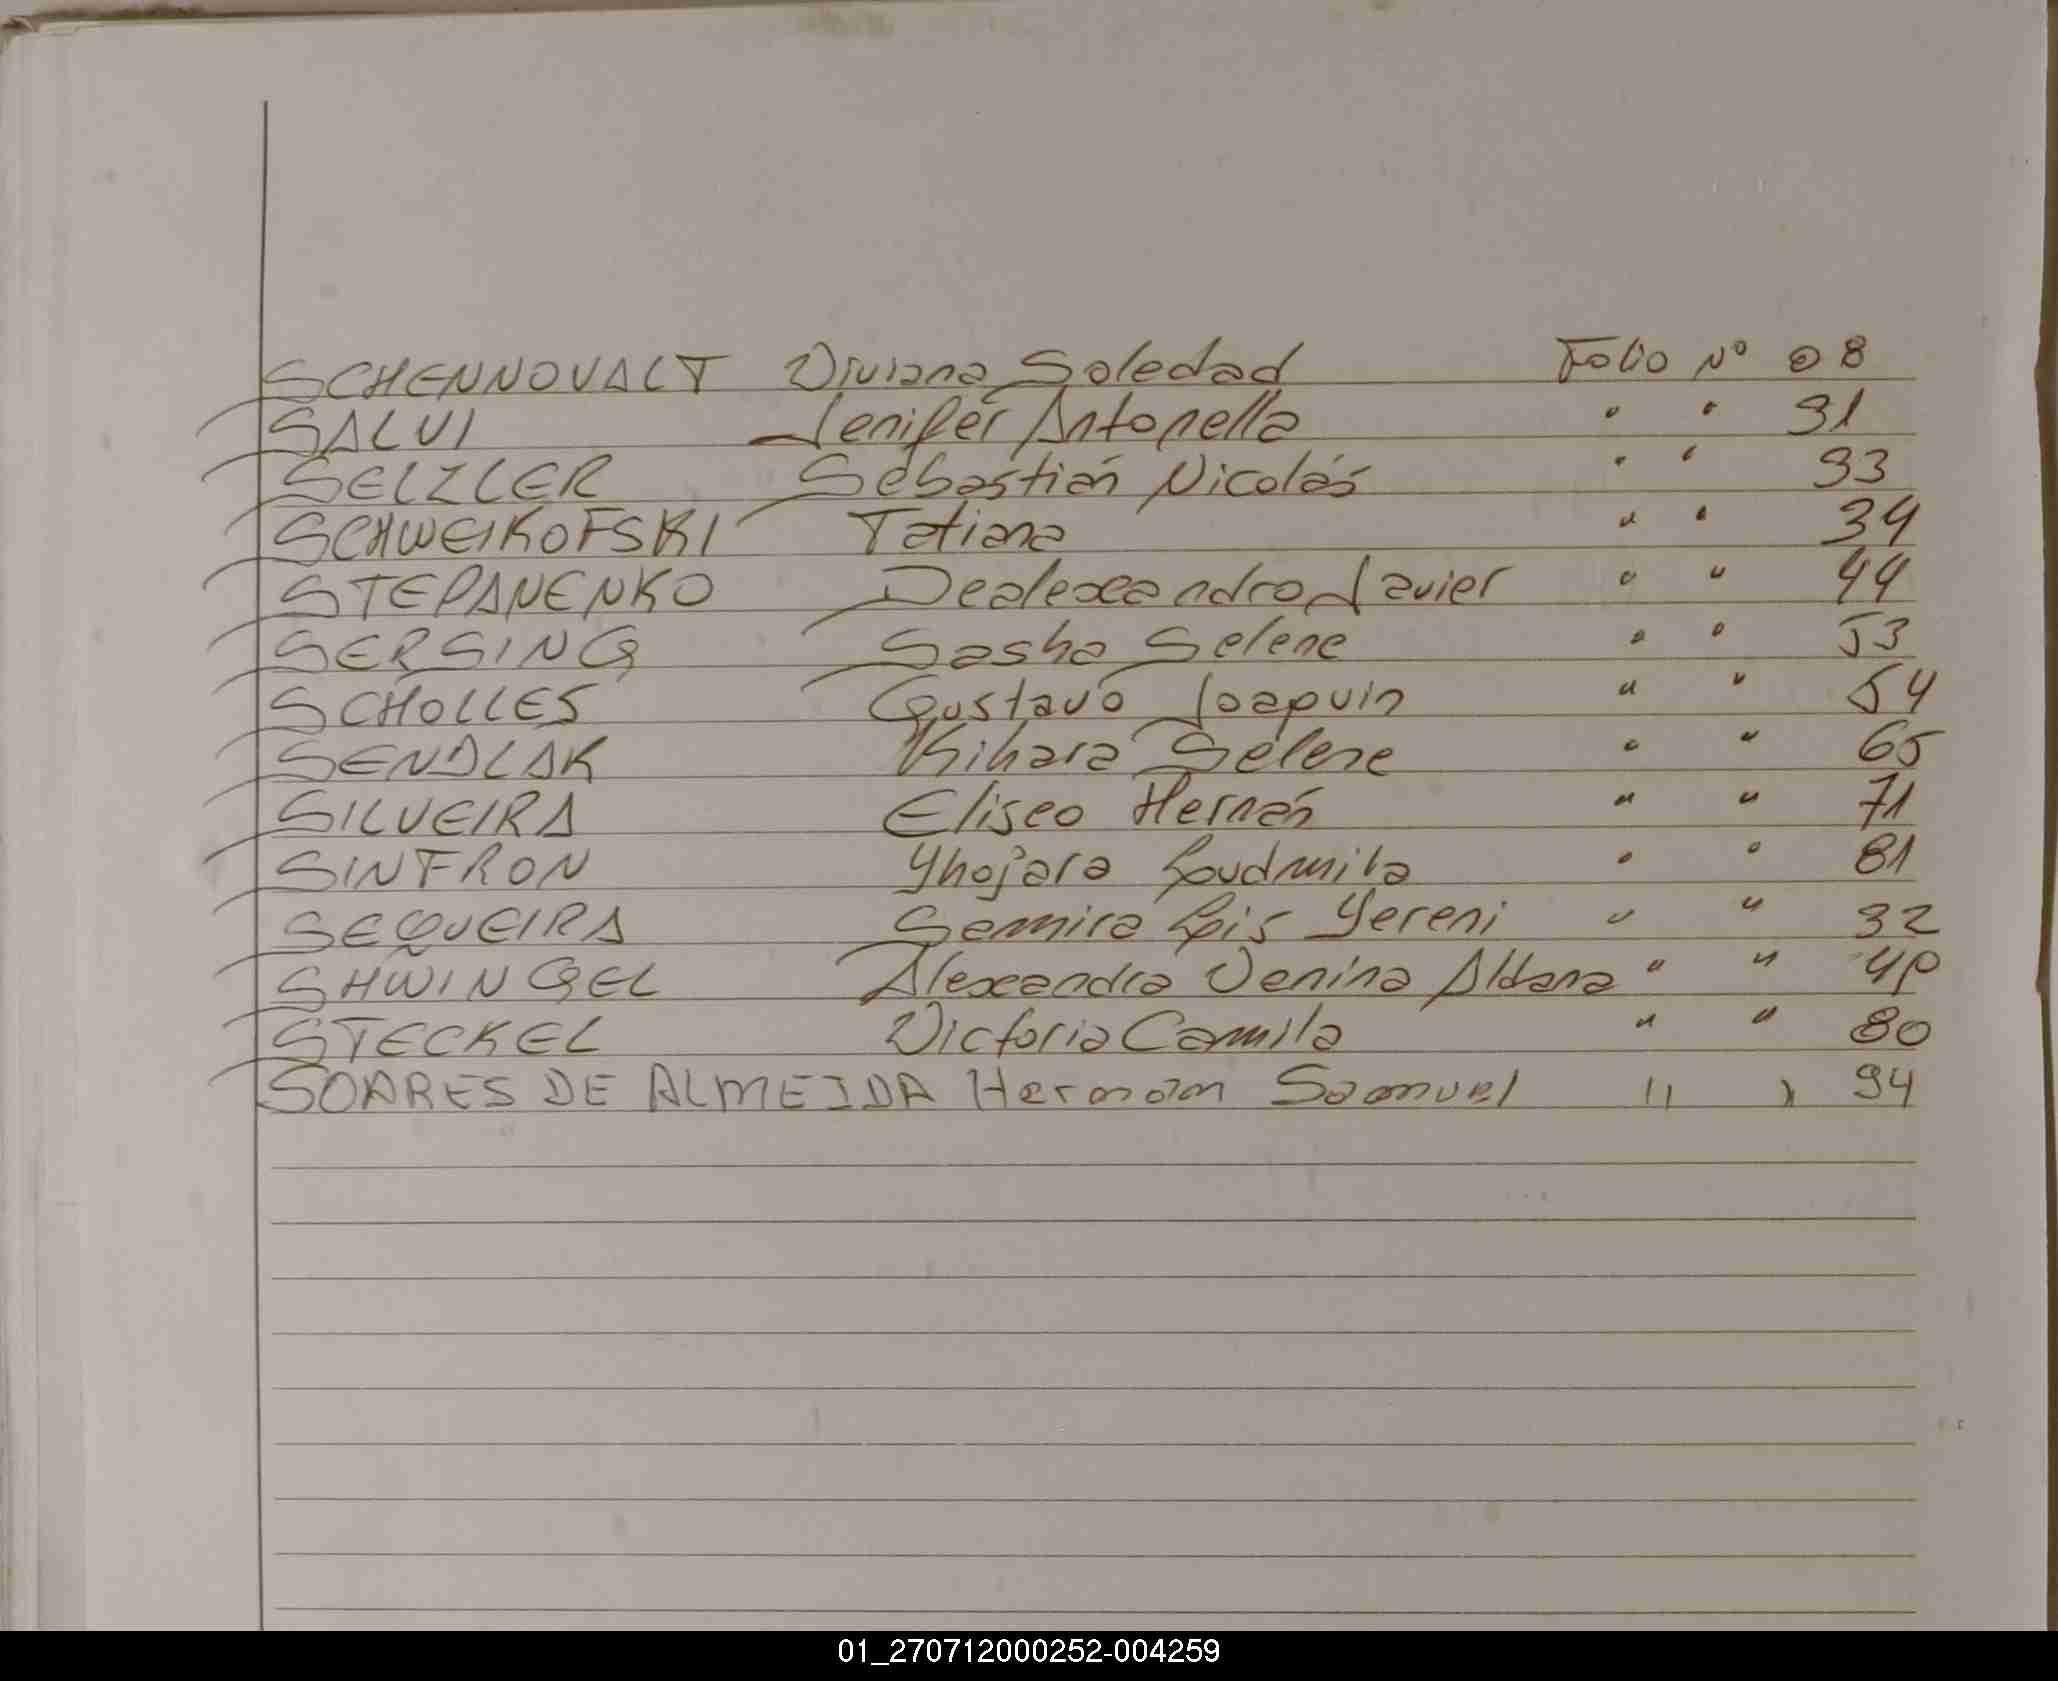 SCHENNOVALT Viviana Soledad Folio Nº 08
SALVI Jenifer Antonella " " 31
SELZLER Sebastián Nicolás " " 33
SCHWEIKOFSKI Tatiana " " 34
STEPANENKO Dealexeandro Javier " " 44
SERSING Sasha Selene " " 53
SCHOLLES Gustavo Joaquin " " 54
SENDLAK Kihara Selene " " 65
SILVEIRA Eliseo Hernán " " 71
SINFRON Yhojara Loudmila " " 81
SEQUEIRA Semira Lois Yereni " " 32
SHWINGEL Alexeandra Venina Aldana " " 40
STECKEL Victoria Camila " " 80
SOARES DE ALMEIDA Hernán Samuel " " 94
01_270712000252-004259